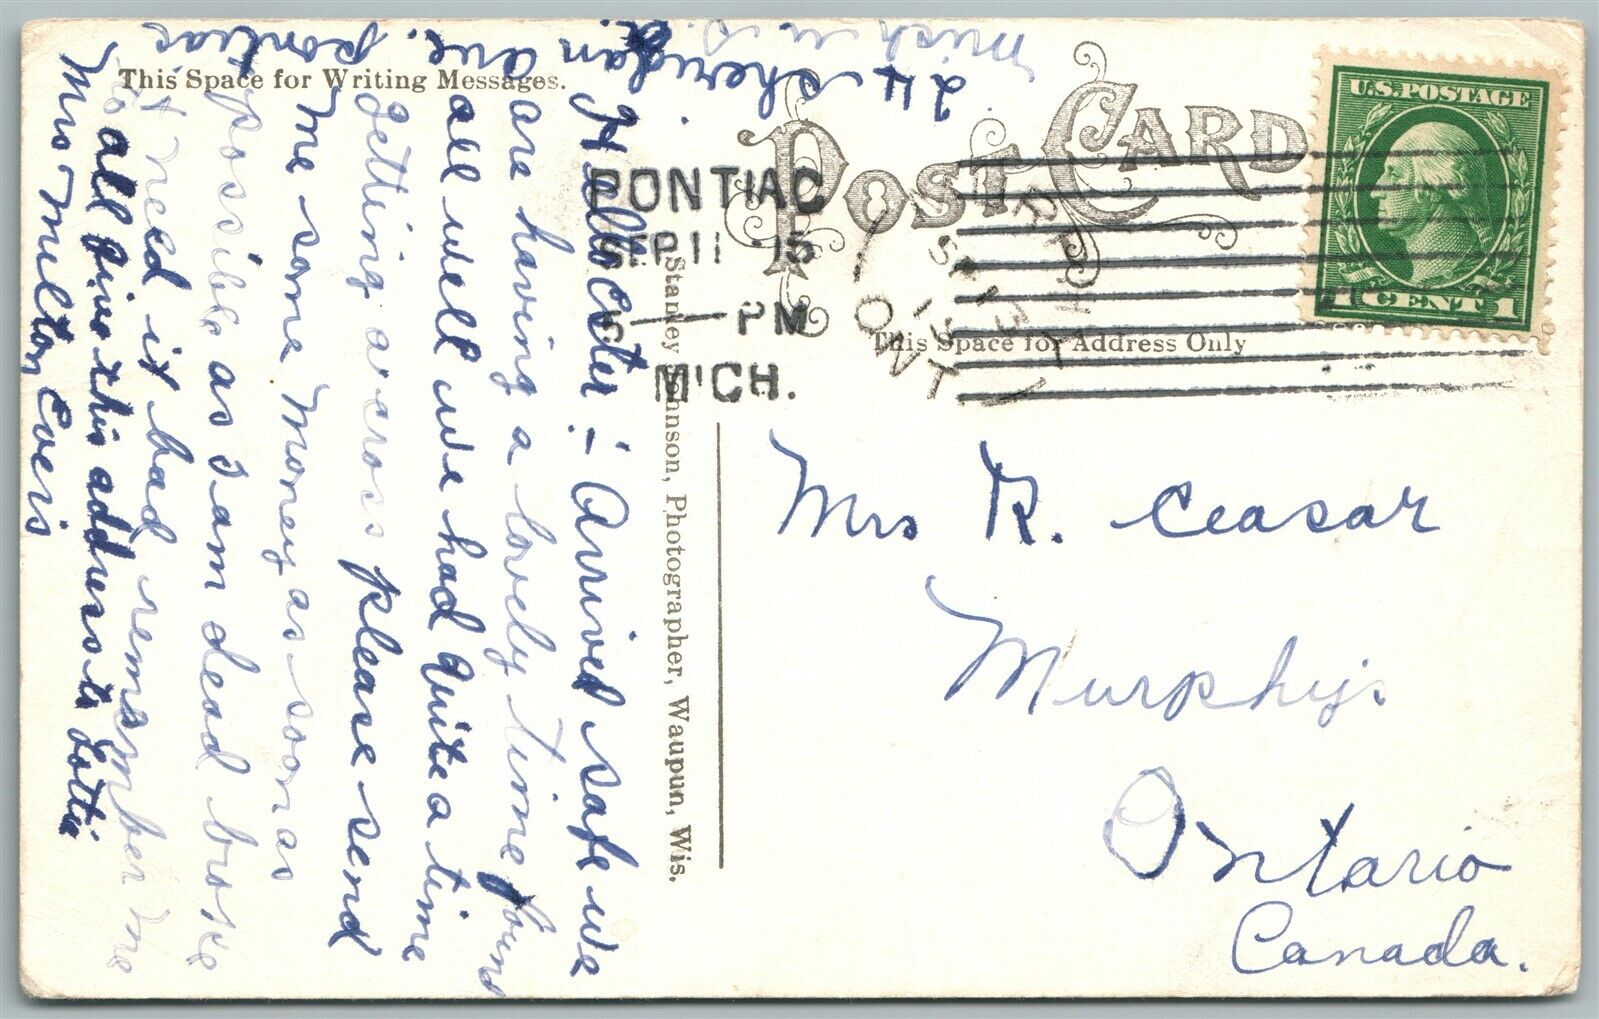 This Space for Writing Messages.
POST CARD
U.S. POSTAGE
1 CENT 1
PONTIAC
SEP 11 '15
PM
MICH.
ONT
This Space for Address Only
Stanley Johnson, Photographer, Waupun, Wis.
Hello Ester :- Arrived safe we
are having a lovely time found
all well we had quite a time
getting across please send
me some money as soon as
possible as I am dead broke
need it bad remember me
to all give this address to Lottie
Mrs Milton Evers
24 Sheridan ave. Pontiac
Mich U.S.A.
Mrs R. Ceasar
Murphys
Ontario
Canada.